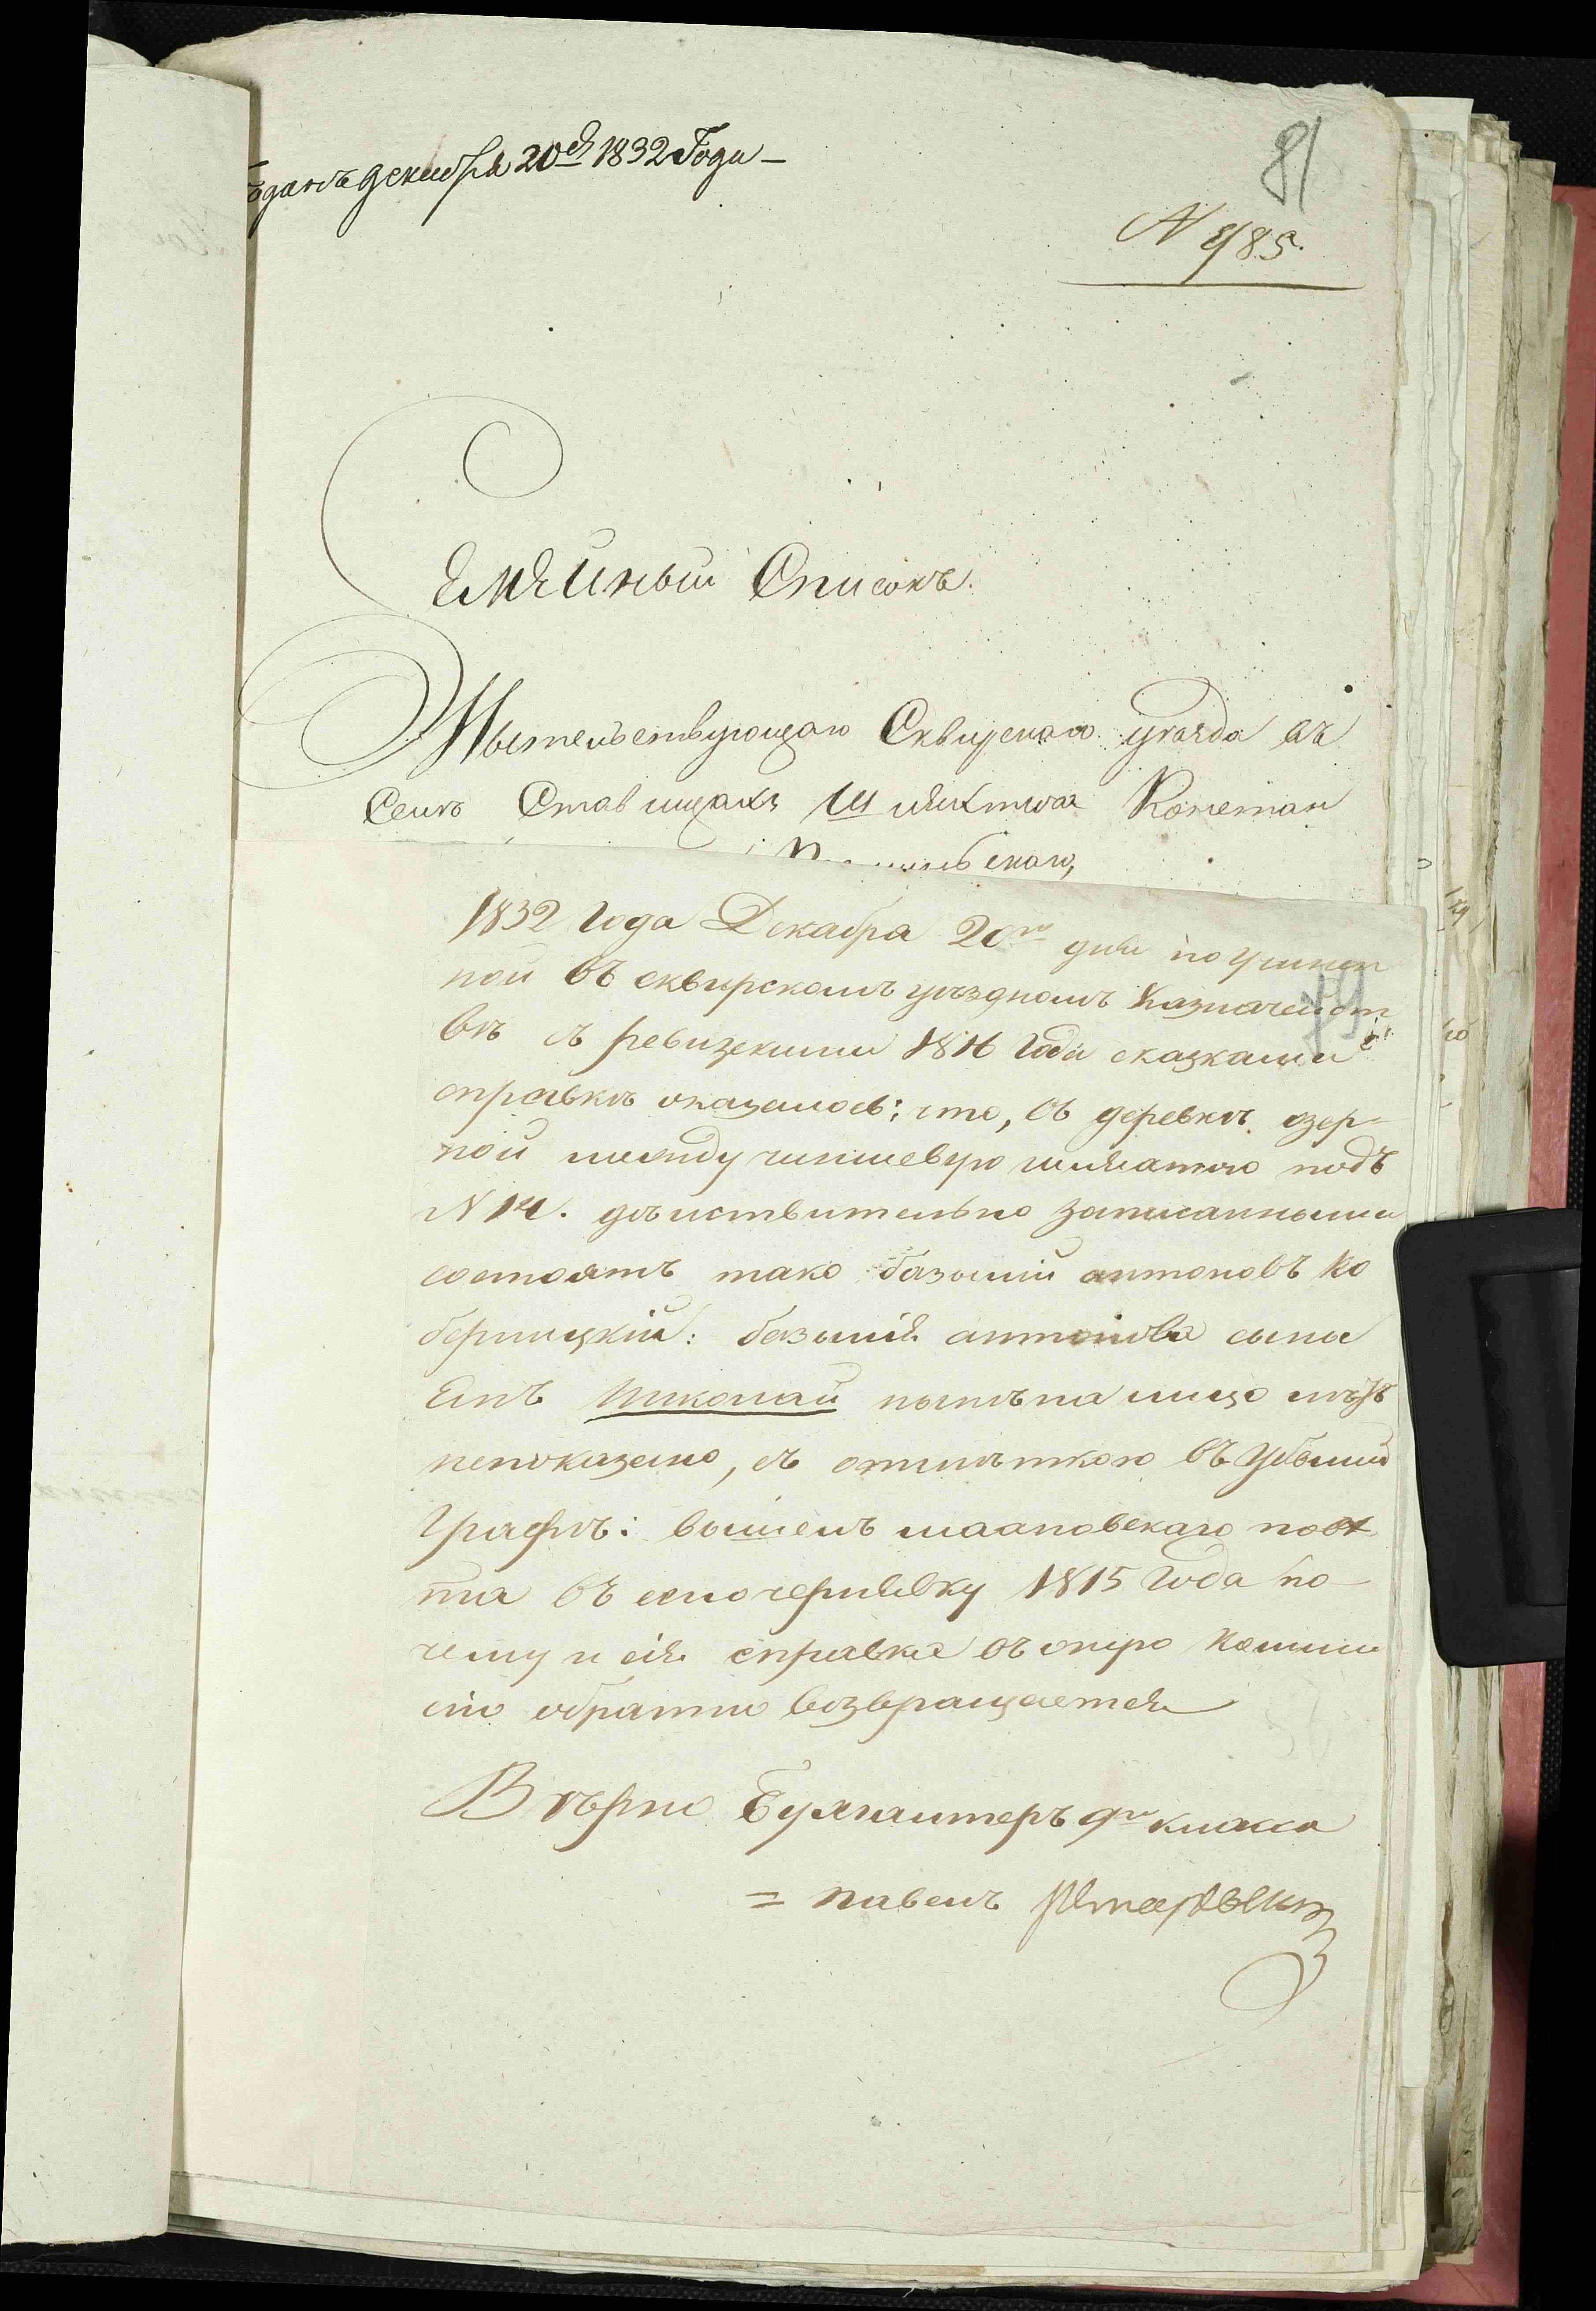 ъданъ декабря 20го 1832 Года —
81
N 985.
Семейный Списокъ.
Жытельствующаго Сквирскаго уезда въ
Селѣ Ставищахъ Шляхтича
скаго,
1832 Года Декабря 20го дня по учинен
ной въ сквирскомъ уѣздномъ Казначейст
вѣ съ ревизскими 1816 Года сказками
справкѣ оказалось: что, въ деревнѣ озер-
ной между чиншевую шляхтою подъ
N 14. дѣиствительно записанными
состоятъ тако базылій антоновъ Ко
берницкій: базылія антонова сына
Емъ Николай
непоказано, съ отмѣткою въ Убылой
Графѣ: вышелъ повѣ
та въ 1815 Года по
чему и сія справка въ оную Комми
сію обратно возвращается
Вѣрно Бухгалтеръ 9го класса
= павелъ